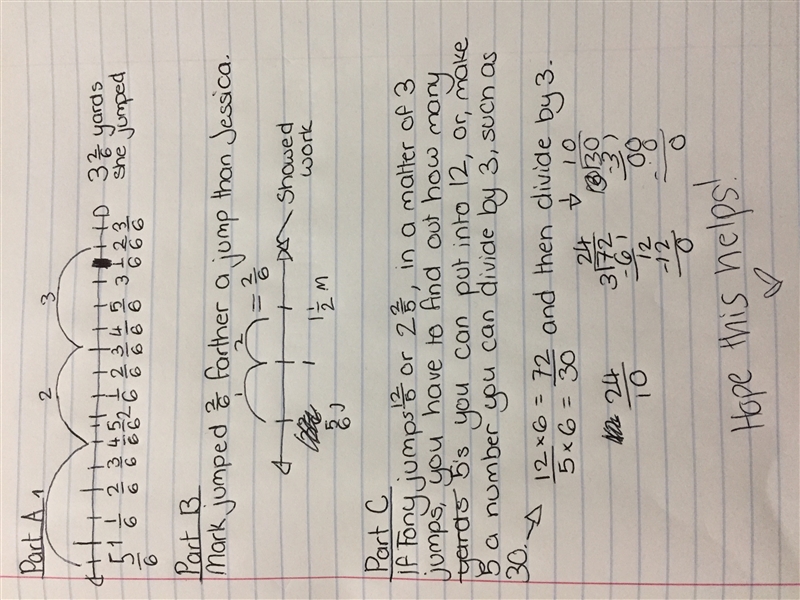 Part A
1 2 3
5/6 1 1/6 2/6 3/6 4/6 5/6 2 1/6 2/6 3/6 4/6 5/6 3 1/6 2/6 3/6
3 2/6 yards
she jumped
Part B
Mark jumped 2/6 farther a jump than Jessica.
1 2 = 2/6
5/6 J 1 1/2 M
Showed
work
Part C
If Tony jumps 12/5 or 2 2/5, in a matter of 3
jumps, you have to find out how many
yards 5's you can put into 12, or, make
5 a number you can divide by 3, such as
30.
12 × 6 = 72
5 × 6 = 30
and then divide by 3.
24/10
24
3)72
-6
12
-12
0
10
3)30
-3
00
-0
0
Hope this helps!